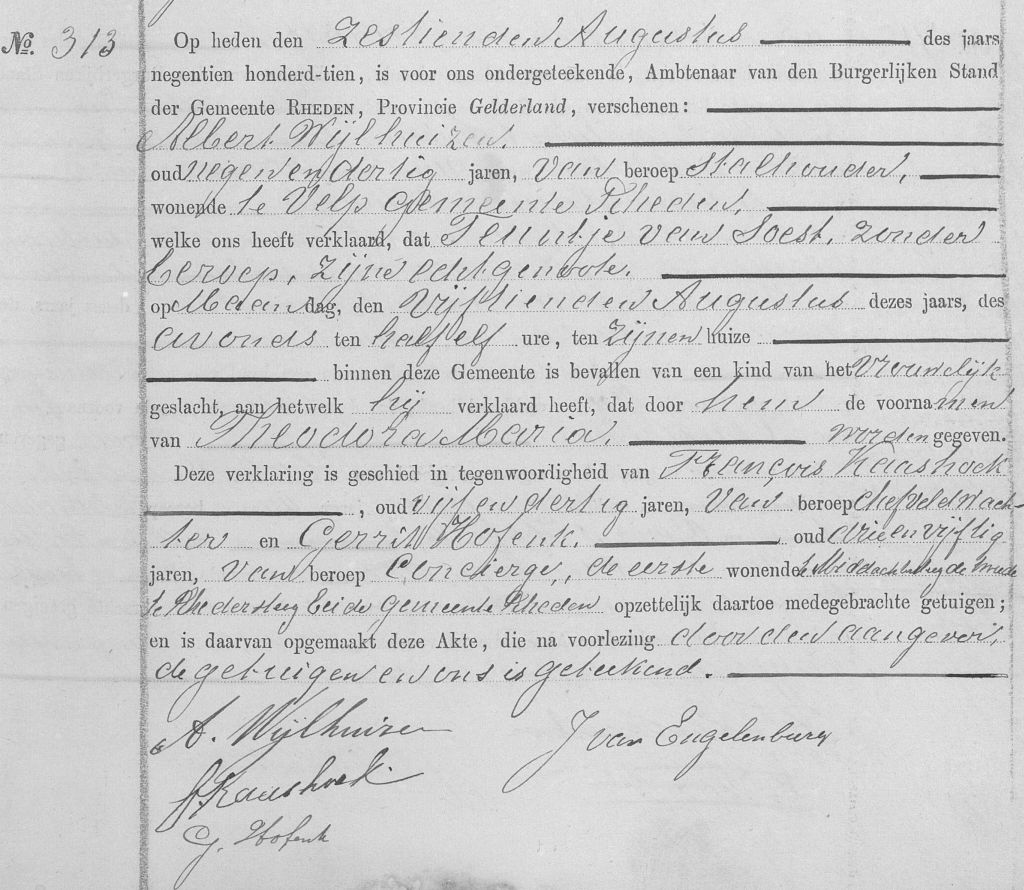 No. 313
Op heden den zestienden Augustus des jaars
negentien honderd-tien, is voor ons ondergeteekende, Ambtenaar van den Burgerlijken Stand
der Gemeente RHEDEN, Provincie Gelderland, verschenen:
Albert Wijlhuizen,
oud negen en dertig jaren, van beroep stalhouder,
wonende te Velp Gemeente Rheden,
welke ons heeft verklaard, dat Teuntje van Soest, zonder
beroep, zijne echtgenoote,
op Maandag, den vijftienden Augustus dezes jaars, des
avonds ten half elf ure, ten zijnen huize
binnen deze Gemeente is bevallen van een kind van het vrouwelijk
geslacht, aan hetwelk hij verklaard heeft, dat door hem de voornamen
van Theodora Maria, worden gegeven.
Deze verklaring is geschied in tegenwoordigheid van François Kaashoek
, oud vijf en dertig jaren, van beroep chefveldwach-
ter en Gerrit Hofenk, oud drie en vijftig
jaren, van beroep Concierge, de eerste wonende te Middachten de
te Rhedersteeg beide Gemeente Rheden opzettelijk daartoe medegebrachte getuigen;
en is daarvan opgemaakt deze Akte, die na voorlezing door den aangever,
de getuigen en ons is geteekend.
A. Wijlhuizen J van Engelenburg
F. Kaashoek
G. Hofenk